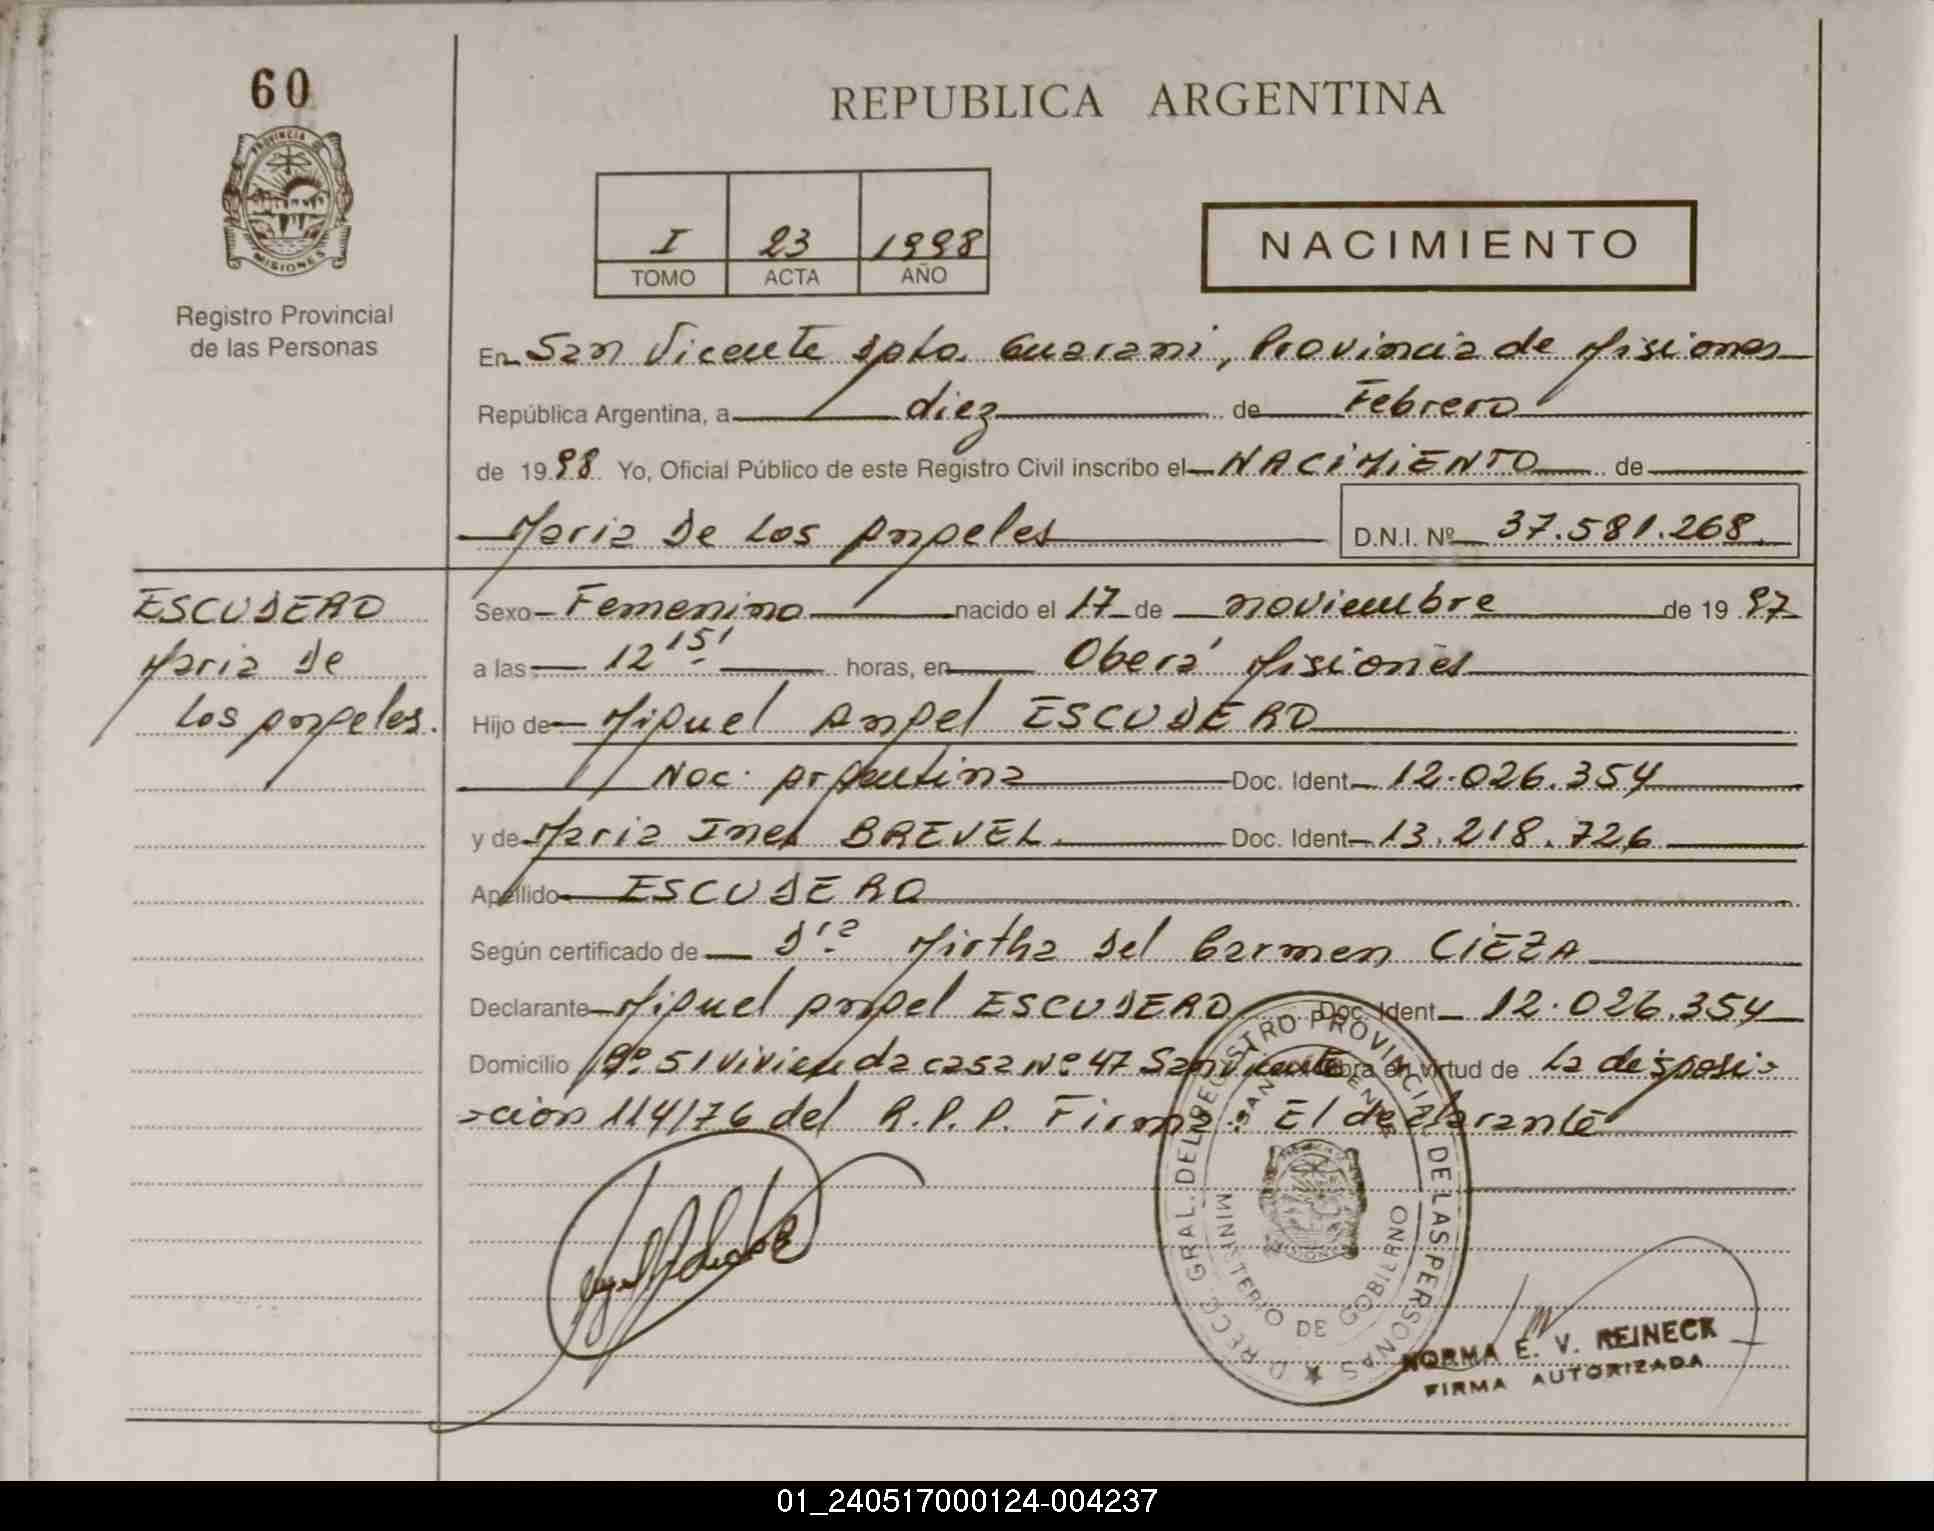 60
PROVINCIA DE
MISIONES
Registro Provincial
de las Personas
REPUBLICA ARGENTINA
I 23 1998
TOMO ACTA AÑO
NACIMIENTO
En San Vicente Dpto. Guarani, Provincia de Misiones
República Argentina, a diez de Febrero
de 1998 Yo, Oficial Público de este Registro Civil inscribo el NACIMIENTO de
Maria De Los Angeles D.N.I. Nº 37.581.268
ESCUDERO
Maria De
Los Angeles.
Sexo Femenino nacido el 17 de noviembre de 1997
a las 12 15' horas, en Oberá Misiones
Hijo de Miguel Angel ESCUDERO
Nac. Argentina Doc. Ident 12.026.354
y de Maria Ines BREVEL Doc. Ident 13.218.726
Apellido ESCUDERO
Según certificado de Dra Mirtha Del Carmen CIEZA
Declarante Miguel Angel ESCUDERO Doc. Ident 12.026.354
Domicilio Bº 51 Vivienda casa Nº 47 San Vicente obra en virtud de La disposi-
-ción 114/76 del R.P.P. Firma: El declarante
DIRECC. GRAL. DEL REGISTRO PROVINCIAL DE LAS PERSONAS
SAN VICENTE
MINISTERIO DE GOBIERNO
NORMA E. V. REINECK
FIRMA AUTORIZADA
01_240517000124-004237